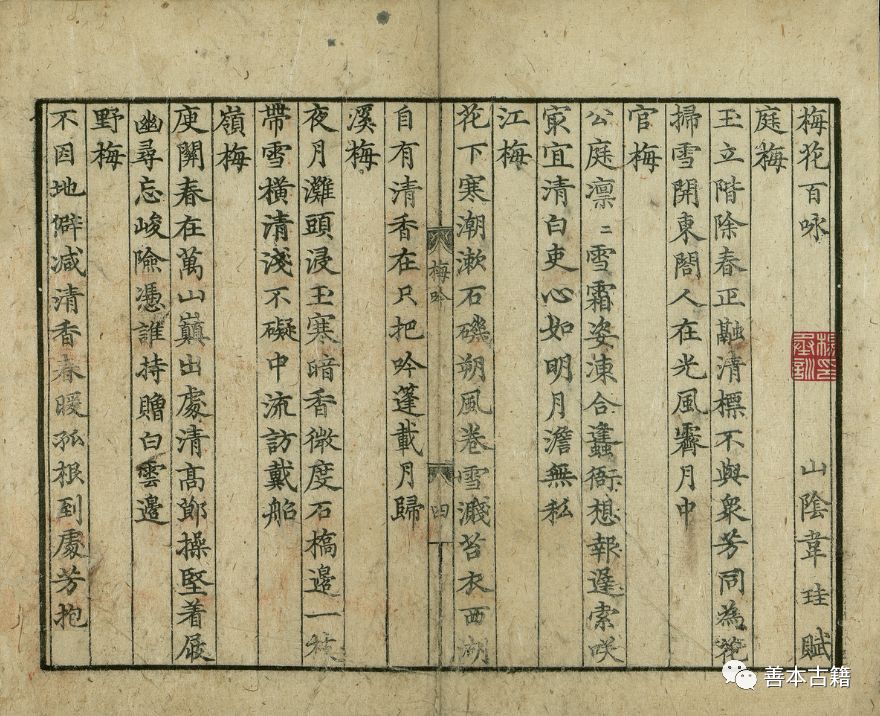 梅花百咏 山陰韋珪賦
庭梅
玉立階除春正融清標不與衆芳同為
掃雪開東閤人在光風霽月中
官梅
公庭凛〻雪霜姿凍合蠭衙想報遲索咲
冣宜清白吏心如明月澹無私
江梅
花下寒潮漱石磯朔風卷雪濺苔衣西湖
梅吟 四
自有清香在只把吟蓬載月歸
溪梅
夜月灘頭浸玉寒暗香微度石橋邊一枝
帶雪橫清淺不礙中流訪戴船
嶺梅
庾關春在萬山巔出處清高節操堅着屐
幽尋忘峻險憑誰持贈白雲邊
野梅
不因地僻减清香春暖孤根到處芳抱
楊印承訓
善本古籍